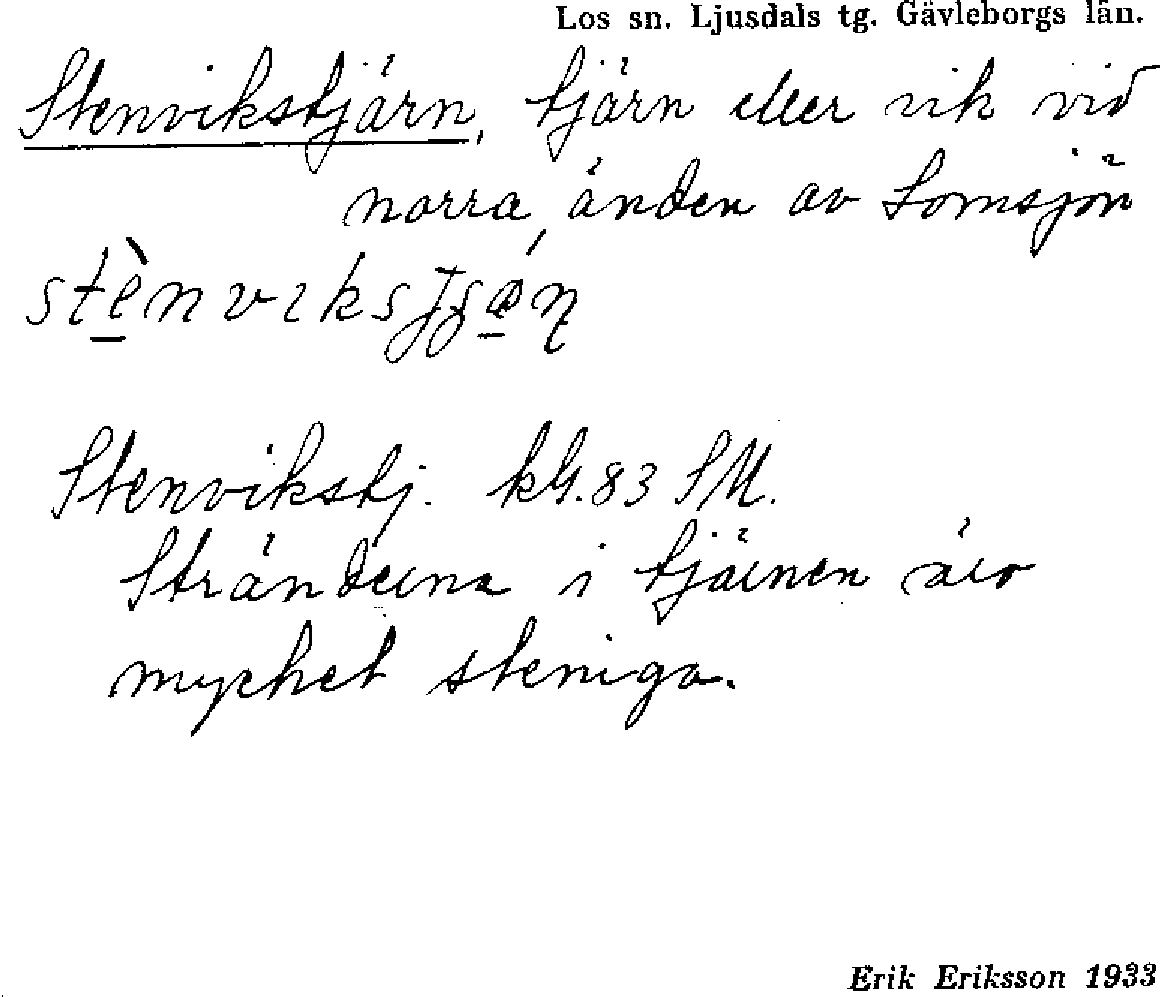 Los sn. Ljusdals tg. Gävleborgs län.
Stenvikstjärn, tjärn eller vik vid
norra änden av Lomsjön
Stenvikstj. kG.83 SM.
Stränderna i tjärnen äro
mycket steniga.
Erik Eriksson 1933